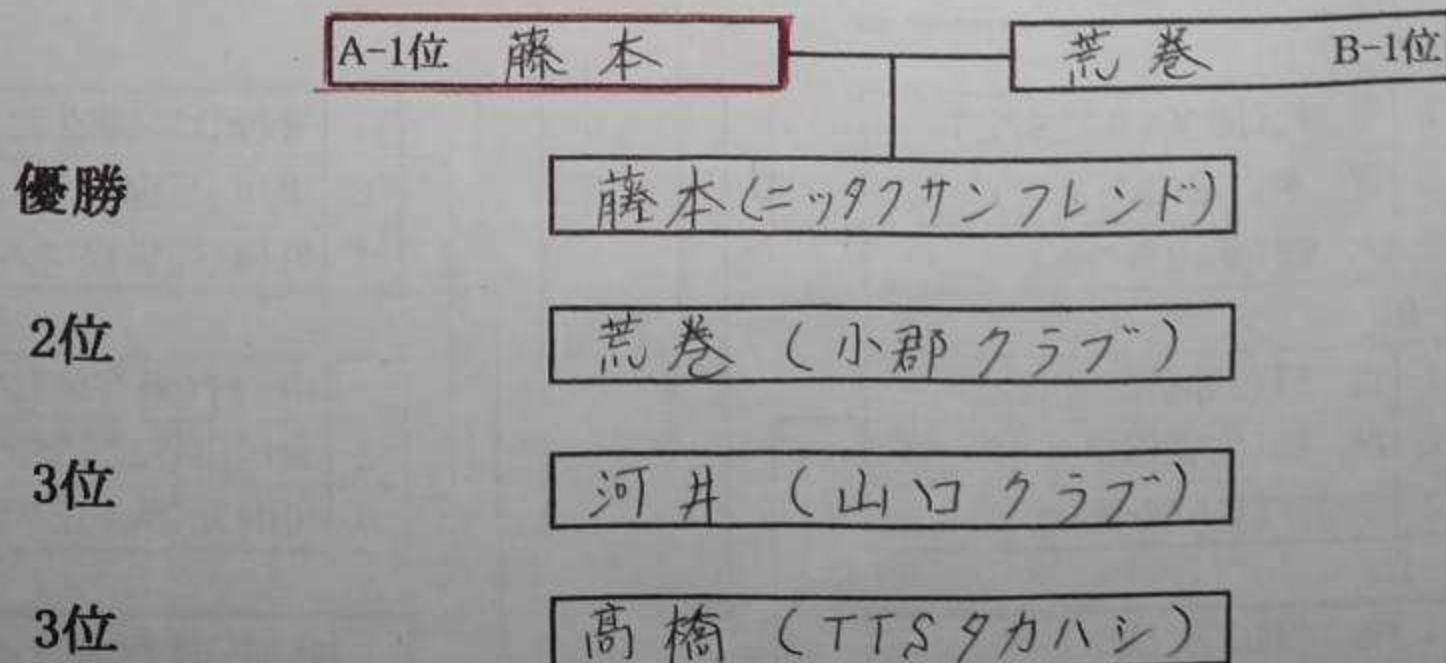 A-1位 藤本 荒巻 B-1位
優勝 藤本(ニッタクサンフレンド)
2位 荒巻(小郡クラブ)
3位 河井(山口クラブ)
3位 髙橋(TTSタカハシ)